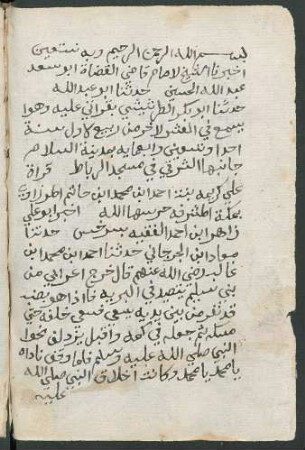 بسم الله الرحمن الرحيم وبه نستعين
اخبرنا الامام قاضي القضاة ابو سعد
عبد الله الحسين حدثنا ابو عبد الله
حدثنا ابو بكر بقراتي عليه وهوا
يسمع في العشر الاخر من ربيع الاول سنة
احد وتسعين واربعمايه بمدينة السلام
جانبها الشرقي في مسجد الرباط قراة
على كريمه بنت احمد ابن محمد ابن حاتم
بمكة حرسها الله اخبر ابو علي
زاهر ابن احمد الفقيه بسرخس حدثنا
معاد ابن الجرجاني حدثنا احمد ابن محمد ابن
غالب رضي الله عنهم قال خرج اعرابي من
بني سليم يتصيد في البريه فاذا هو بضب
قد نفر من بين يديه يسعي فسعي خلفه حتى
مسكه ثم جعله في كمه واقبل يزدلف نحوا
النبي صلى الله عليه وسلم فلما وقف ناداه
يا محمد يا محمد وكانت اخلاق النبي صلى الله
عليه